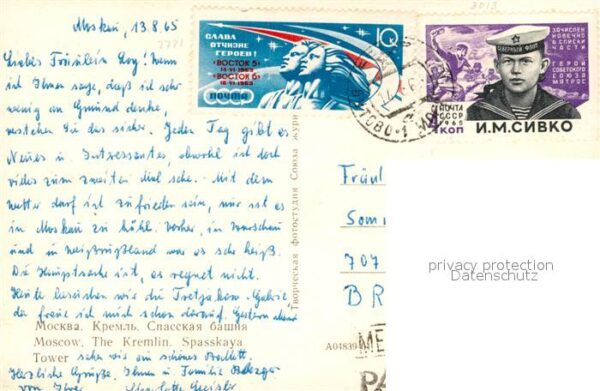 Moskau, 13.8.65
Liebes Fräulein Loy! Wenn
ich Ihnen sage, daß ich sehr
wenig an Gmünd denke,
verstehen Sie das sicher. Jeden Tag gibt es
Neues u. Interessantes, obwohl ich doch
vieles zum zweiten Mal sehe. Mit dem
Wetter darf ich zufrieden sein, nur ist es
in Moskau zu kühl. Vorher, in Warschau
und in Weißrußland war es sehr heiß.
Die Hauptsache ist, es regnet nicht.
Heute besuchen wir die Tretjakow-Galerie,
da freue ich mich schon darauf. Gestern abend
Москва. Кремль. Спасская башня
Moscow, The Kremlin. Spasskaya
Tower
sahen wir ein schönes Ballett.
Herzliche Grüße, Ihnen u. Familie
von Ihrer Charlotte Geisler
Творческая фотостудия Союза журн
СЛАВА
ОТЧИЗНЕ
ГЕРОЕВ!
"ВОСТОК 5"
14-VI-1963
"ВОСТОК 6"
16-VI-1963
ПОЧТА
10
3013
ЗАЧИСЛЕН
НАВЕЧНО
В СПИСКИ
ЧАСТИ
ГЕРОЙ
СОВЕТСКОГО
СОЮЗА
МАТРОС
СЕВЕРНЫЙ ФЛОТ
ПОЧТА
СССР
1965
4 КОП
И.М.СИВКО
Fräul
Som
707
BR
A04839
ME
PA
privacy protection
Datenschutz